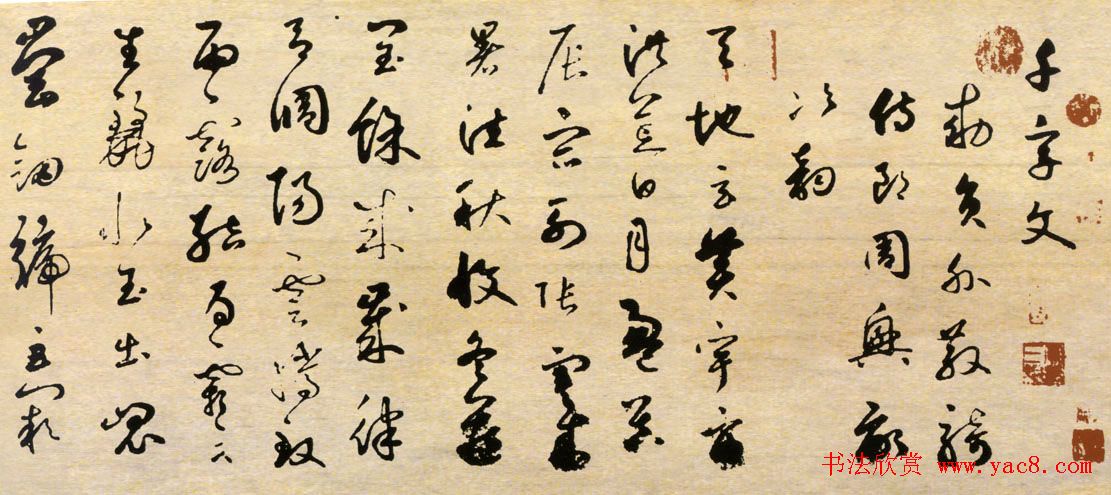 千字文
敕員外散騎
侍郎周興嗣
次韻
天地玄黃宇宙
洪荒日月盈昃
辰宿列張寒來
暑往秋收冬藏
閏餘成歲律
呂調陽雲騰致
雨露結為霜金
生麗水玉出崑
崗劍號巨闕
书法欣赏 www.yac8.com